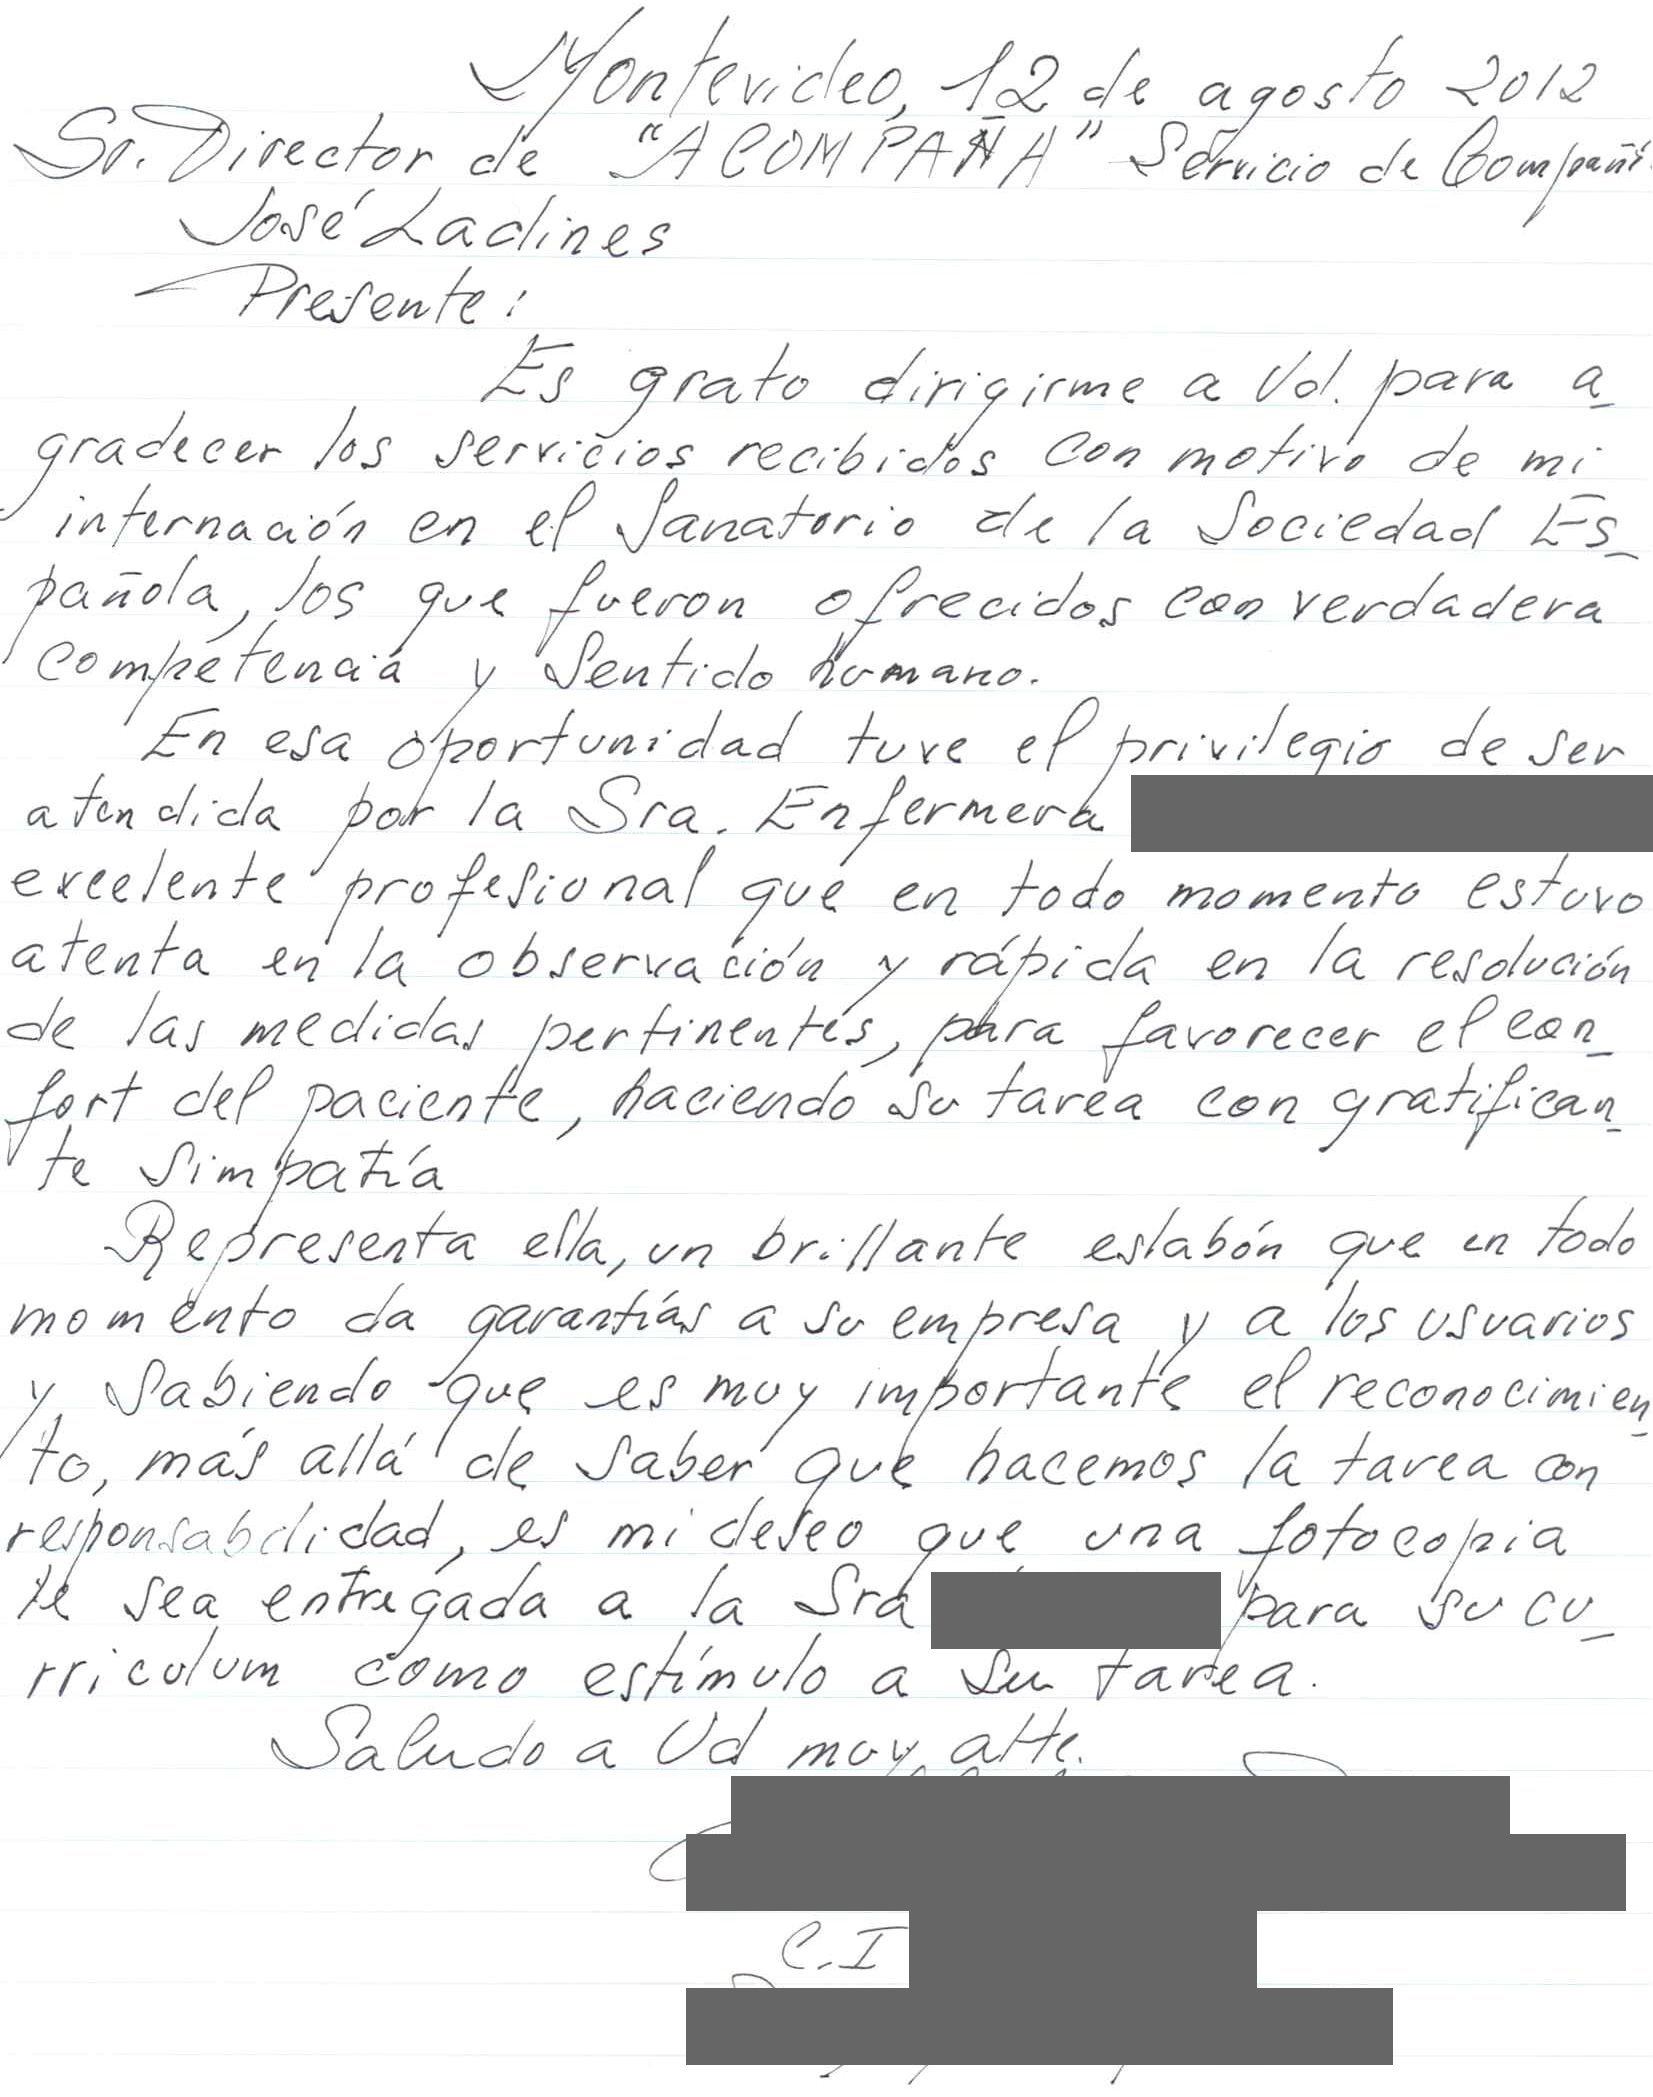 Montevideo, 12 de agosto 2012
Sr. Director de "ACOMPAÑA" Servicio de Compañí
José Ladines
Presente:
Es grato dirigirme a Ud. para a_
gradecer los servicios recibidos con motivo de mi
internación en el Sanatorio de la Sociedad Es_
pañola, los que fueron ofrecidos con verdadera
competencia y sentido humano.
En esa oportunidad tuve el privilegio de ser
atendida por la Sra. Enfermera
excelente profesional que en todo momento estuvo
atenta en la observación y rápida en la resolución
de las medidas pertinentes, para favorecer el con_
fort del paciente, haciendo su tarea con gratifican_
te simpatía
Representa ella, un brillante eslabón que en todo
momento da garantías a su empresa y a los usuarios
y sabiendo que es muy importante el reconocimien_
to, más allá de saber que hacemos la tarea con
responsabilidad, es mi deseo que una fotocopia
le sea entregada a la Sra para su cu_
rriculum como estímulo a su tarea.
Saludo a Ud muy atte.
C.I